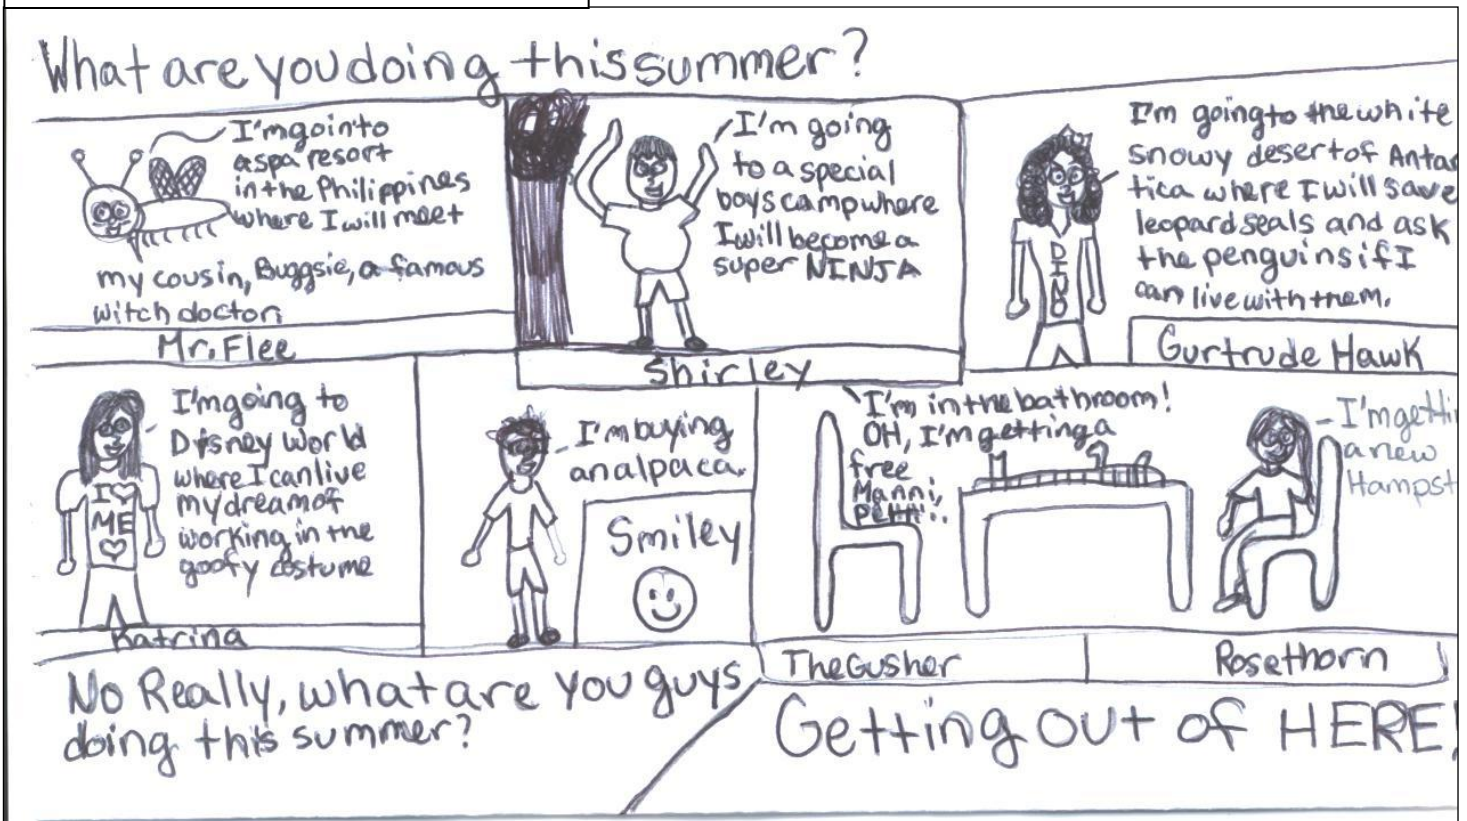 What are you doing this summer?
I'm goin to
a spa resort
in the Philippines
where I will meet
my cousin, Buggsie, a famous
witch doctor.
Mr. Flee
I'm going
to a special
boys camp where
I will become a
super NINJA
Shirley
I'm going to the white
snowy desert of Antar
tica where I will save
leopard seals and ask
the penguins if I
can live with them.
DINO
Gurtrude Hawk
I'm going to
Disney World
where I can live
my dream of
working in the
goofy costume
I ♡
ME
♡
Katrina
I'm buying
an alpaca.
Smiley
I'm in the bathroom!
OH, I'm getting a
free
Manni,
Petti...
The Gusher
I'm getti
a new
Hampst
Rosethorn
No Really, what are you guys
doing this summer?
Getting out of HERE!